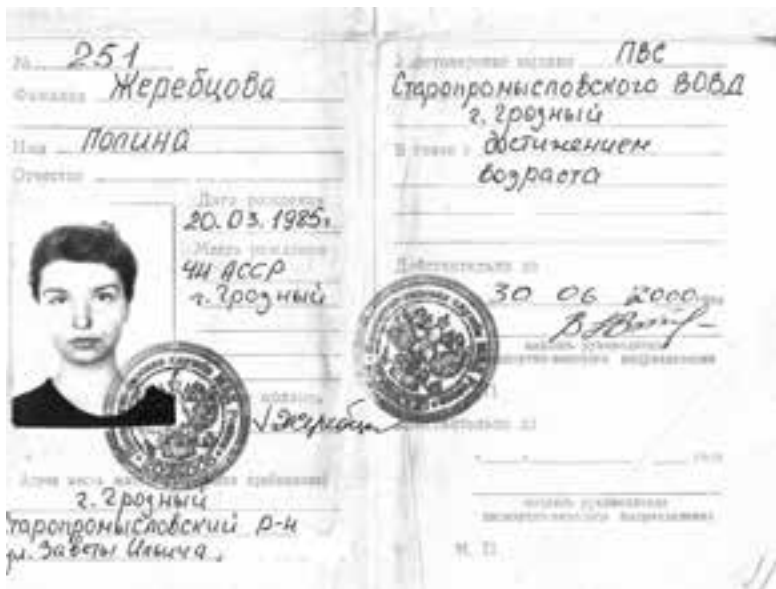 № 251
Фамилия Жеребцова
Имя Полина
Отчество
Дата рождения
20.03.1985г
Место рождения
ЧИ АССР
г. Грозный
г. Грозный
Старопромысловский р-н
ул. Заветы Ильича,
ПВС
Старопромысловского ВОВД
г. Грозный
В связи с достижением
возраста
Действительно до
30 06 2000
подпись руководителя
паспортно-визового подразделения
Действительно до
подпись руководителя
паспортно-визового подразделения
М. П.